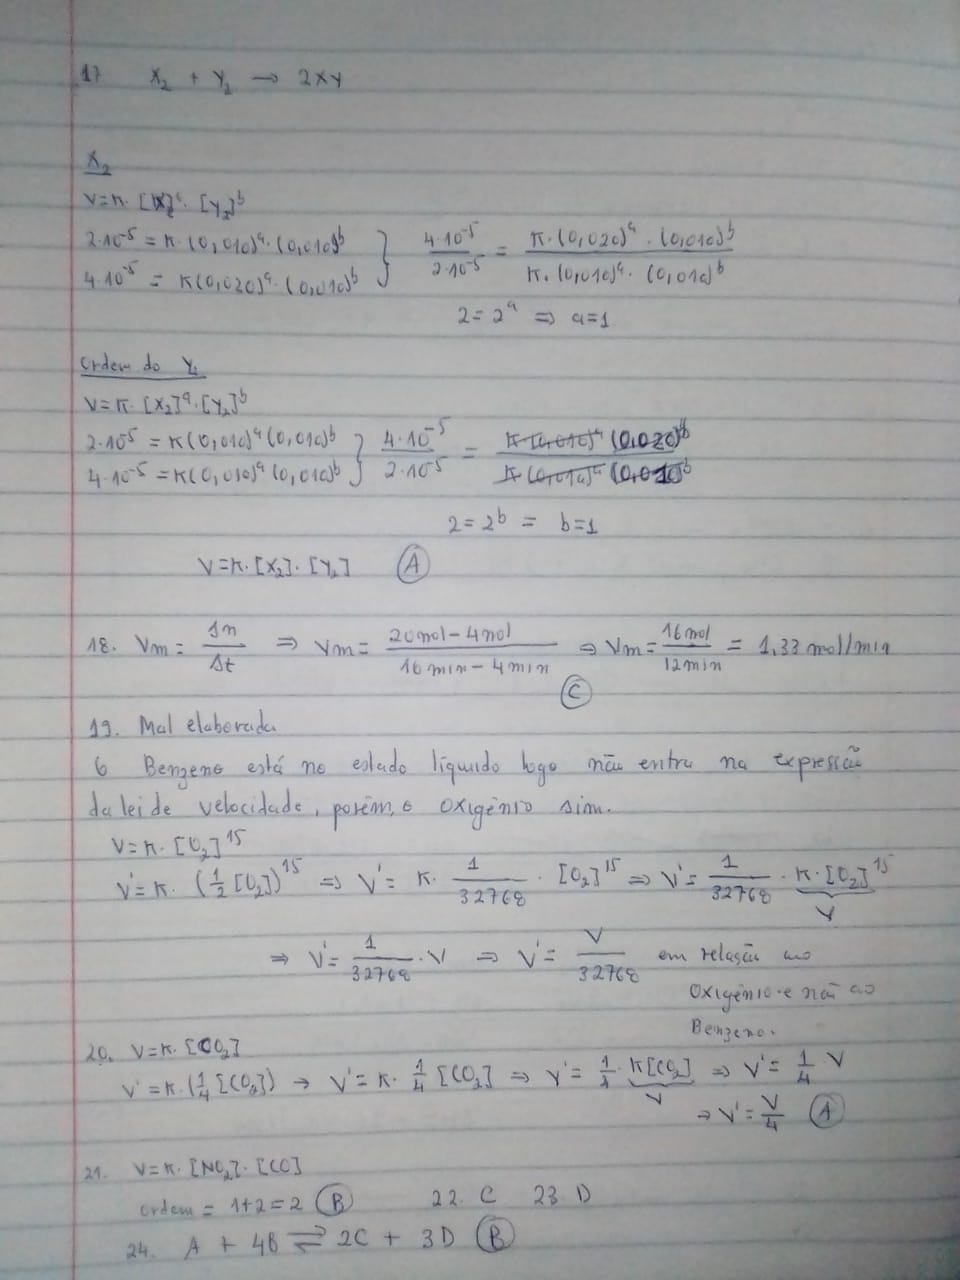 17 X₂ + Y₂ → 2XY
X₂
V=K. [X₂]ᵃ. [Y₂]ᵇ
2.10⁻⁵ = K.(0,010)ᵃ.(0,010)ᵇ
4.10⁻⁵ = K(0,020)ᵃ.(0,010)ᵇ } 4.10⁻⁵/2.10⁻⁵ = K.(0,020)ᵃ.(0,010)ᵇ/K.(0,010)ᵃ.(0,010)ᵇ
2=2ᵃ ⇒ a=1
Ordem do Y₂
V=K.[X₂]ᵃ.[Y₂]ᵇ
2.10⁻⁵ = K(0,010)ᵃ(0,010)ᵇ
4.10⁻⁵ = K(0,010)ᵃ(0,010)ᵇ } 4.10⁻⁵/2.10⁻⁵ = K(0,010)ᵃ(0,020)ᵇ/K(0,010)ᵃ(0,010)ᵇ
2=2ᵇ = b=1
V=K.[X₂].[Y₂] A
18. Vm = Δn/Δt ⇒ Vm = 20mol-4mol/16min-4min ⇒ Vm = 16mol/12min = 1,33 mol/min
C
19. Mal elaborada
O Benzeno está no estado líquido logo não entra na expressão
da lei de velocidade, porém, o oxigénio sim.
V=K.[O₂]¹⁵
V'=K.(1/2 [O₂])¹⁵ ⇒ V'=K. 1/32768 . [O₂]¹⁵ ⇒ V'= 1/32768 . K.[O₂]¹⁵
V
⇒ V'= 1/32768 . V ⇒ V'= V/32768 em relação ao
Oxigénio e não ao
Benzeno.
20. V=K.[CO₂]
V'=K.(1/4 [CO₂]) → V'=K. 1/4 [CO₂] ⇒ V'= 1/4 . K[CO₂] ⇒ V'= 1/4 V
V
⇒ V'= V/4 A
21. V=K.[NO₂].[CO]
Ordem = 1+2=2 B 22. C 23. D
24. A + 4B ⇌ 2C + 3D B